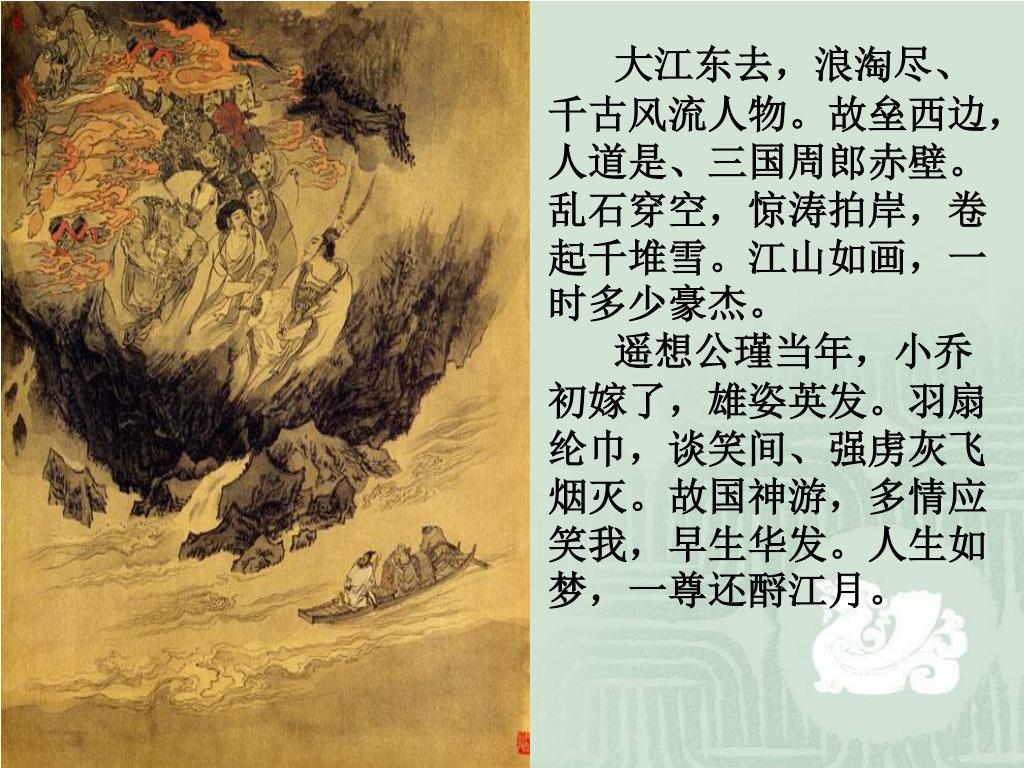 大江东去，浪淘尽、
千古风流人物。故垒西边，
人道是、三国周郎赤壁。
乱石穿空，惊涛拍岸，卷
起千堆雪。江山如画，一
时多少豪杰。
遥想公瑾当年，小乔
初嫁了，雄姿英发。羽扇
纶巾，谈笑间、强虏灰飞
烟灭。故国神游，多情应
笑我，早生华发。人生如
梦，一尊还酹江月。